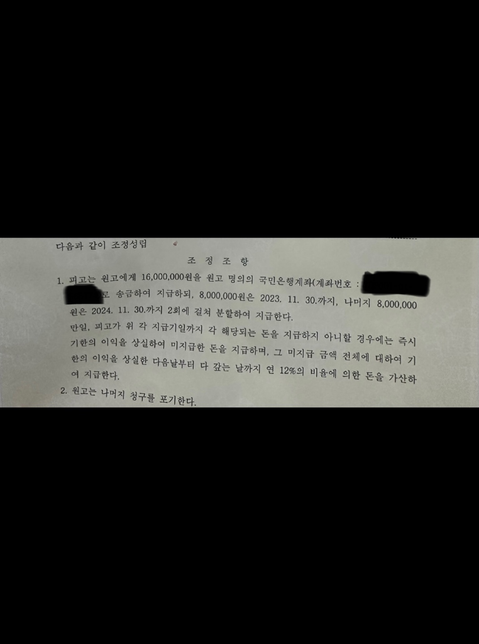 다음과 같이 조정성립
조 정 조 항
1. 피고는 원고에게 16,000,000원을 원고 명의의 국민은행계좌(계좌번호 :
로 송금하여 지급하되, 8,000,000원은 2023. 11. 30.까지, 나머지 8,000,000
원은 2024. 11. 30.까지 2회에 걸쳐 분할하여 지급한다.
만일, 피고가 위 각 지급기일까지 각 해당되는 돈을 지급하지 아니할 경우에는 즉시
기한의 이익을 상실하여 미지급한 돈을 지급하며, 그 미지급 금액 전체에 대하여 기
한의 이익을 상실한 다음날부터 다 갚는 날까지 연 12%의 비율에 의한 돈을 가산하
여 지급한다.
2. 원고는 나머지 청구를 포기한다.